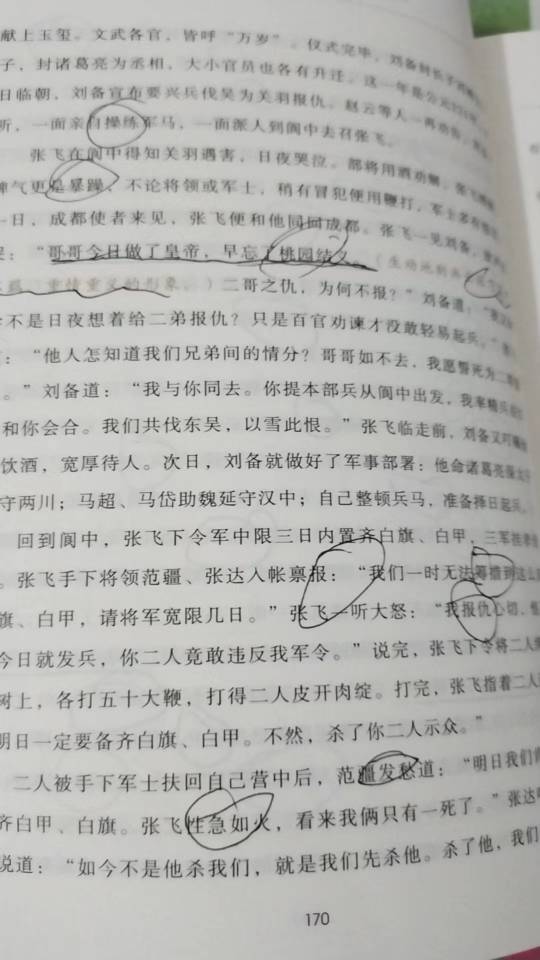 献上玉玺。文武各官，皆呼“万岁”。仪式完毕，刘备封长子
子，封诸葛亮为丞相，大小官员也各有升迁。这一年是公元221年
日临朝，刘备宣布要兴兵伐吴为关羽报仇。赵云等人一再劝告，
听，一面亲自操练军马，一面派人到阆中去召张飞。
张飞在阆中得知关羽遇害，日夜哭泣。部将用酒劝解，张飞
脾气更是暴躁，不论将领或军士，稍有冒犯便用鞭打，军士多有
一日，成都使者来见，张飞便和他同回成都。张飞一见刘备，
“哥哥今日做了皇帝，早忘了桃园结义。（生动地刻画
重情重义的形象。）二哥之仇，为何不报？”刘备道：
不是日夜想着给二弟报仇？只是百官劝谏才没敢轻易起兵。”
：“他人怎知道我们兄弟间的情分？哥哥如不去，我愿誓死为二哥
。”刘备道：“我与你同去。你提本部兵从阆中出发，我率精兵
和你会合。我们共伐东吴，以雪此恨。”张飞临走前，刘备又叮嘱他
饮酒，宽厚待人。次日，刘备就做好了军事部署：他命诸葛亮保太子
守两川；马超、马岱助魏延守汉中；自己整顿兵马，准备择日起兵。
回到阆中，张飞下令军中限三日内置齐白旗、白甲，三军挂孝
。张飞手下将领范疆、张达入帐禀报：“我们一时无法筹措到这么
旗、白甲，请将军宽限几日。”张飞一听大怒：“我报仇心切，恨
今日就发兵，你二人竟敢违反我军令。”说完，张飞下令将二人
树上，各打五十大鞭，打得二人皮开肉绽。打完，张飞指着二人
明日一定要备齐白旗、白甲。不然，杀了你二人示众。”
二人被手下军士扶回自己营中后，范疆发愁道：“明日我们
齐白甲、白旗。张飞性急如火，看来我俩只有一死了。”张达
说道：“如今不是他杀我们，就是我们先杀他。杀了他，我们
170